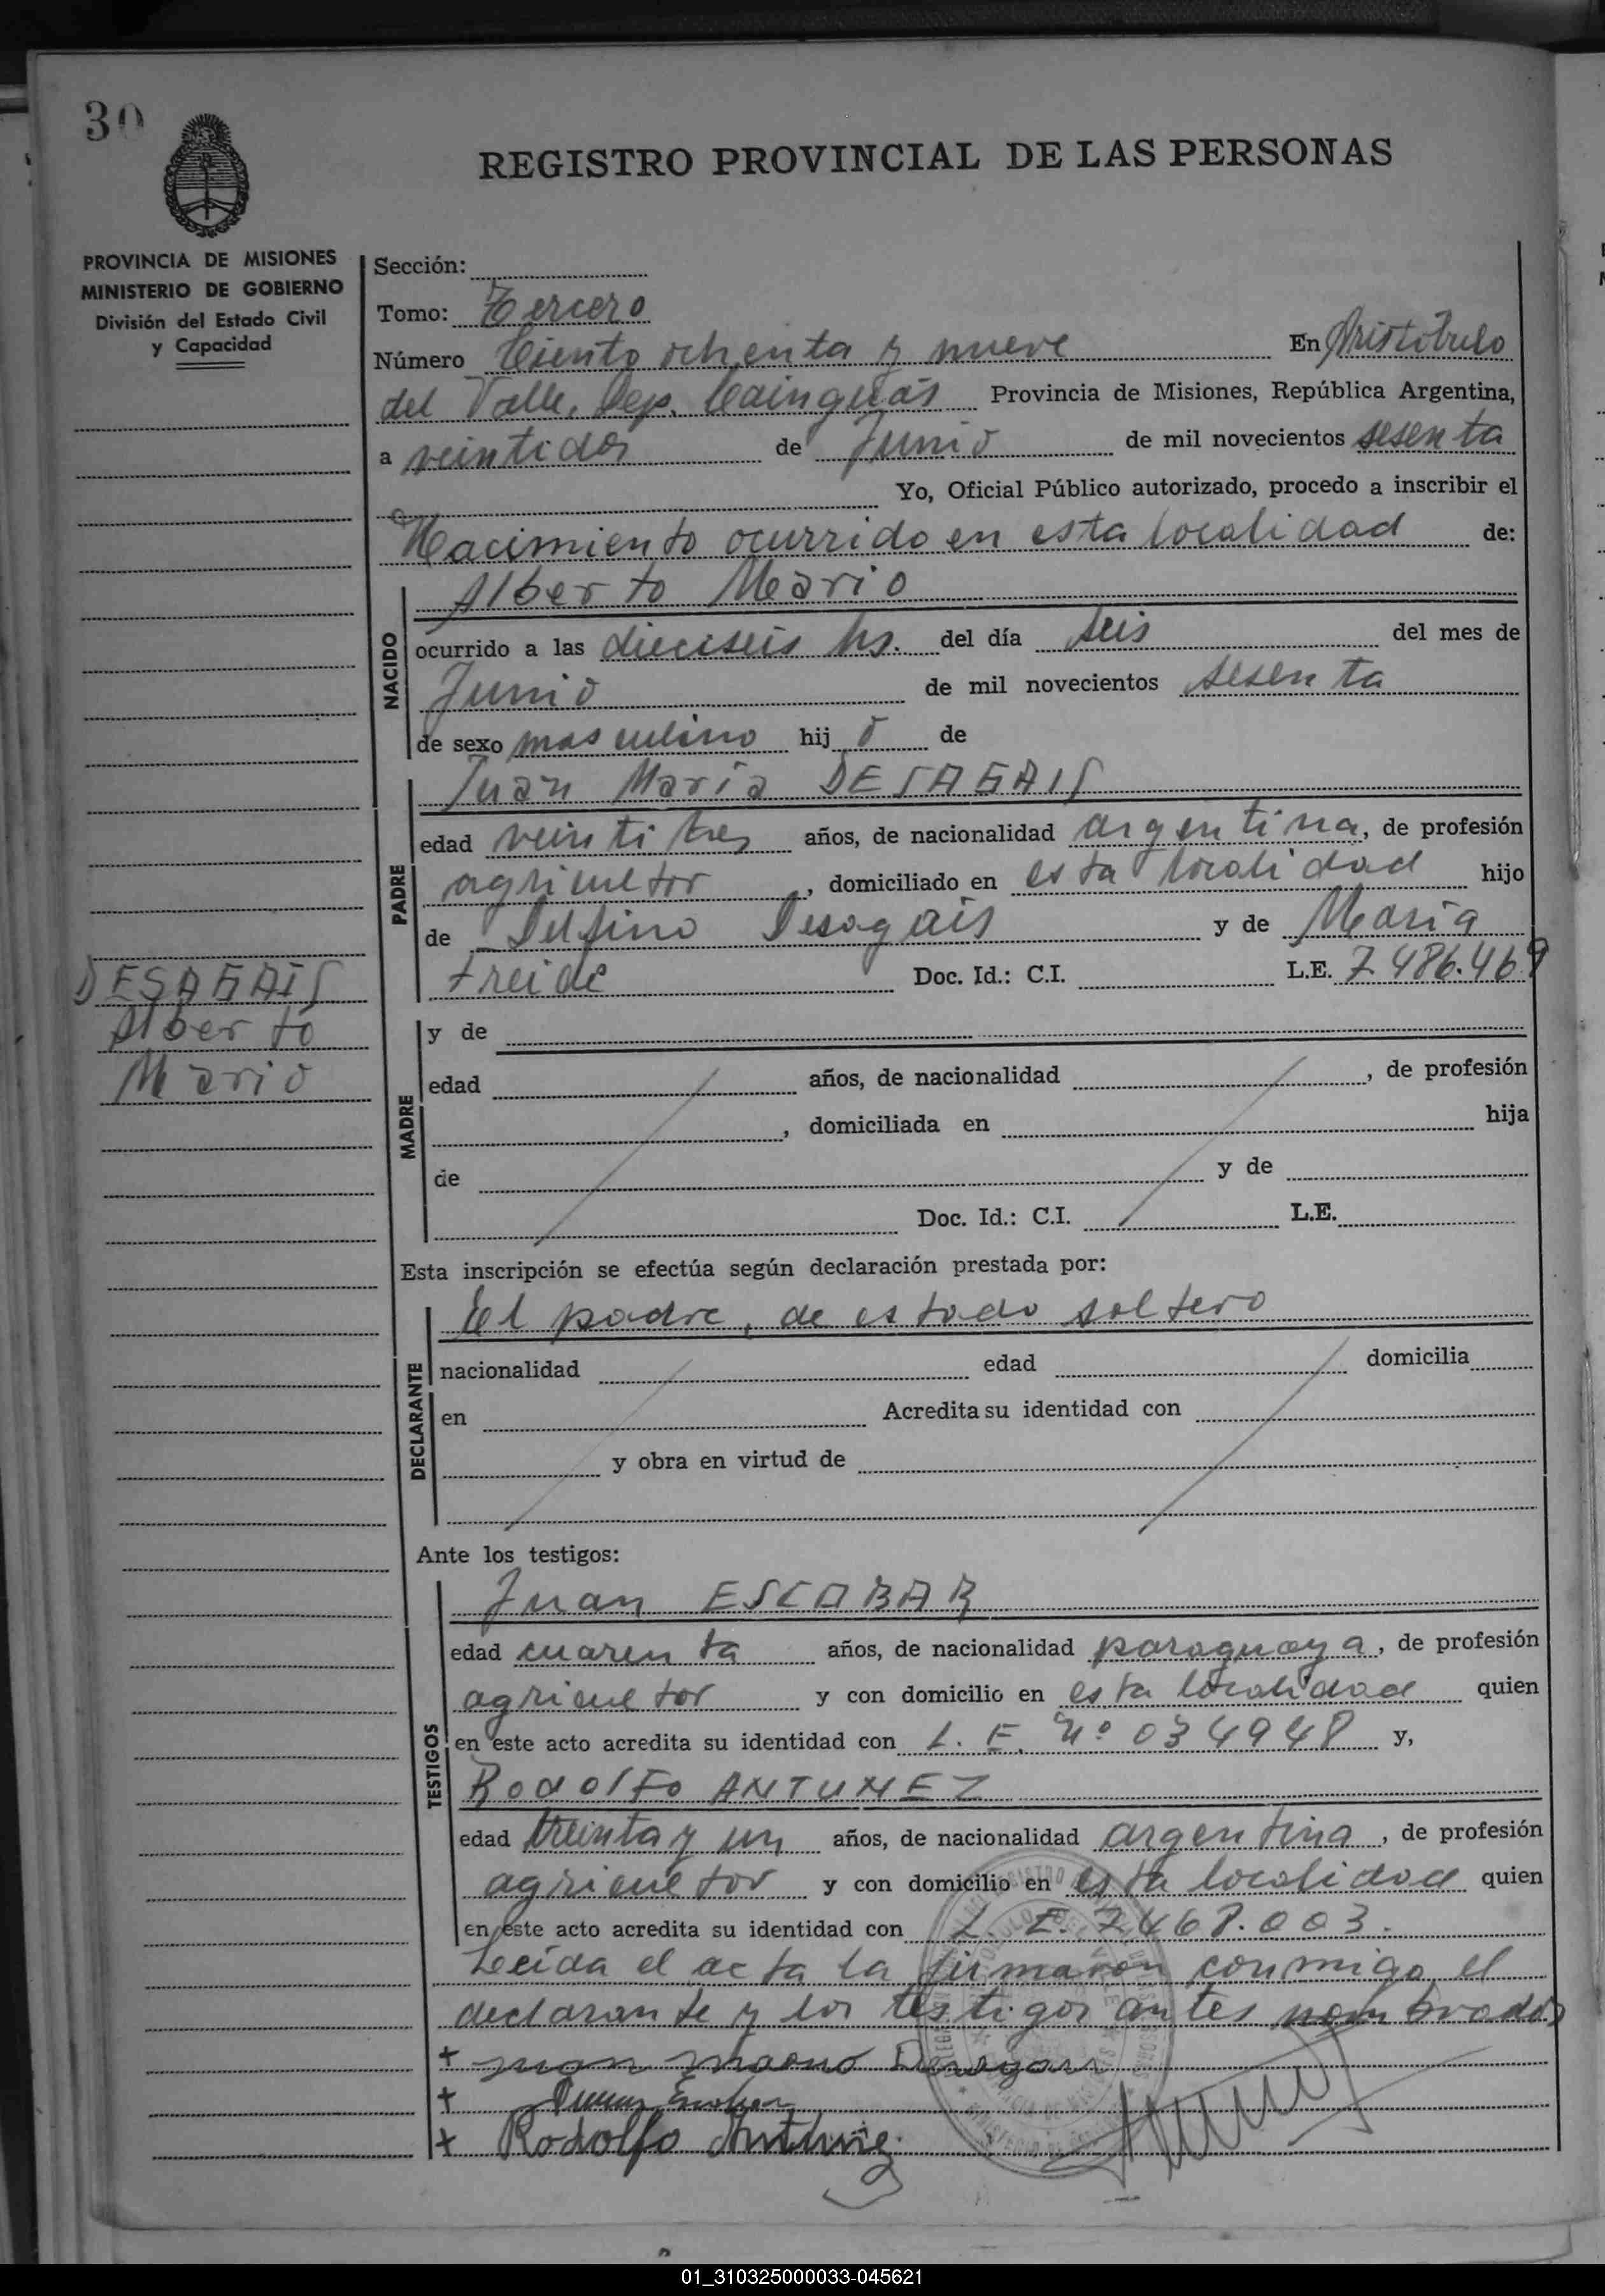 30
REGISTRO PROVINCIAL DE LAS PERSONAS
PROVINCIA DE MISIONES
MINISTERIO DE GOBIERNO
División del Estado Civil
y Capacidad
Sección:
Tomo: Tercero
Número Ciento ochenta y nueve En Aristóbulo
del Valle, Dep. Cainguás Provincia de Misiones, República Argentina,
a veintidos de Junio de mil novecientos sesenta
Yo, Oficial Público autorizado, procedo a inscribir el
Nacimiento ocurrido en esta localidad de:
NACIDO
Alberto Mario
ocurrido a las dieciseis hs. del día seis del mes de
Junio de mil novecientos sesenta
de sexo masculino hij o de
PADRE
Juan María DESAGAIS
edad veintitres años, de nacionalidad argentina, de profesión
agricultor, domiciliado en esta localidad hijo
de Delfino Desagais y de María
Freide Doc. Id.: C.I. L.E. 7.486.469
DESAGAIS
Alberto
Mario
MADRE
y de
edad años, de nacionalidad , de profesión
, domiciliada en hija
de y de
Doc. Id.: C.I. L.E.
Esta inscripción se efectúa según declaración prestada por:
DECLARANTE
El padre, de estado soltero
nacionalidad edad domicilia
en Acredita su identidad con
y obra en virtud de
Ante los testigos:
TESTIGOS
Juan ESCOBAR
edad cuarenta años, de nacionalidad paraguaya, de profesión
agricultor y con domicilio en esta localidad quien
en este acto acredita su identidad con L. E. Nº 034948 y,
Rodolfo ANTUNEZ
edad treinta y un años, de nacionalidad argentina, de profesión
agricultor y con domicilio en esta localidad quien
en este acto acredita su identidad con L. E. 7.468.003.
Leída el acta la firmaron conmigo el
declarante y los testigos antes nombrados
+ Juan Desagais
+ Juan Escobar
+ Rodolfo Antunez
01_310325000033-045621